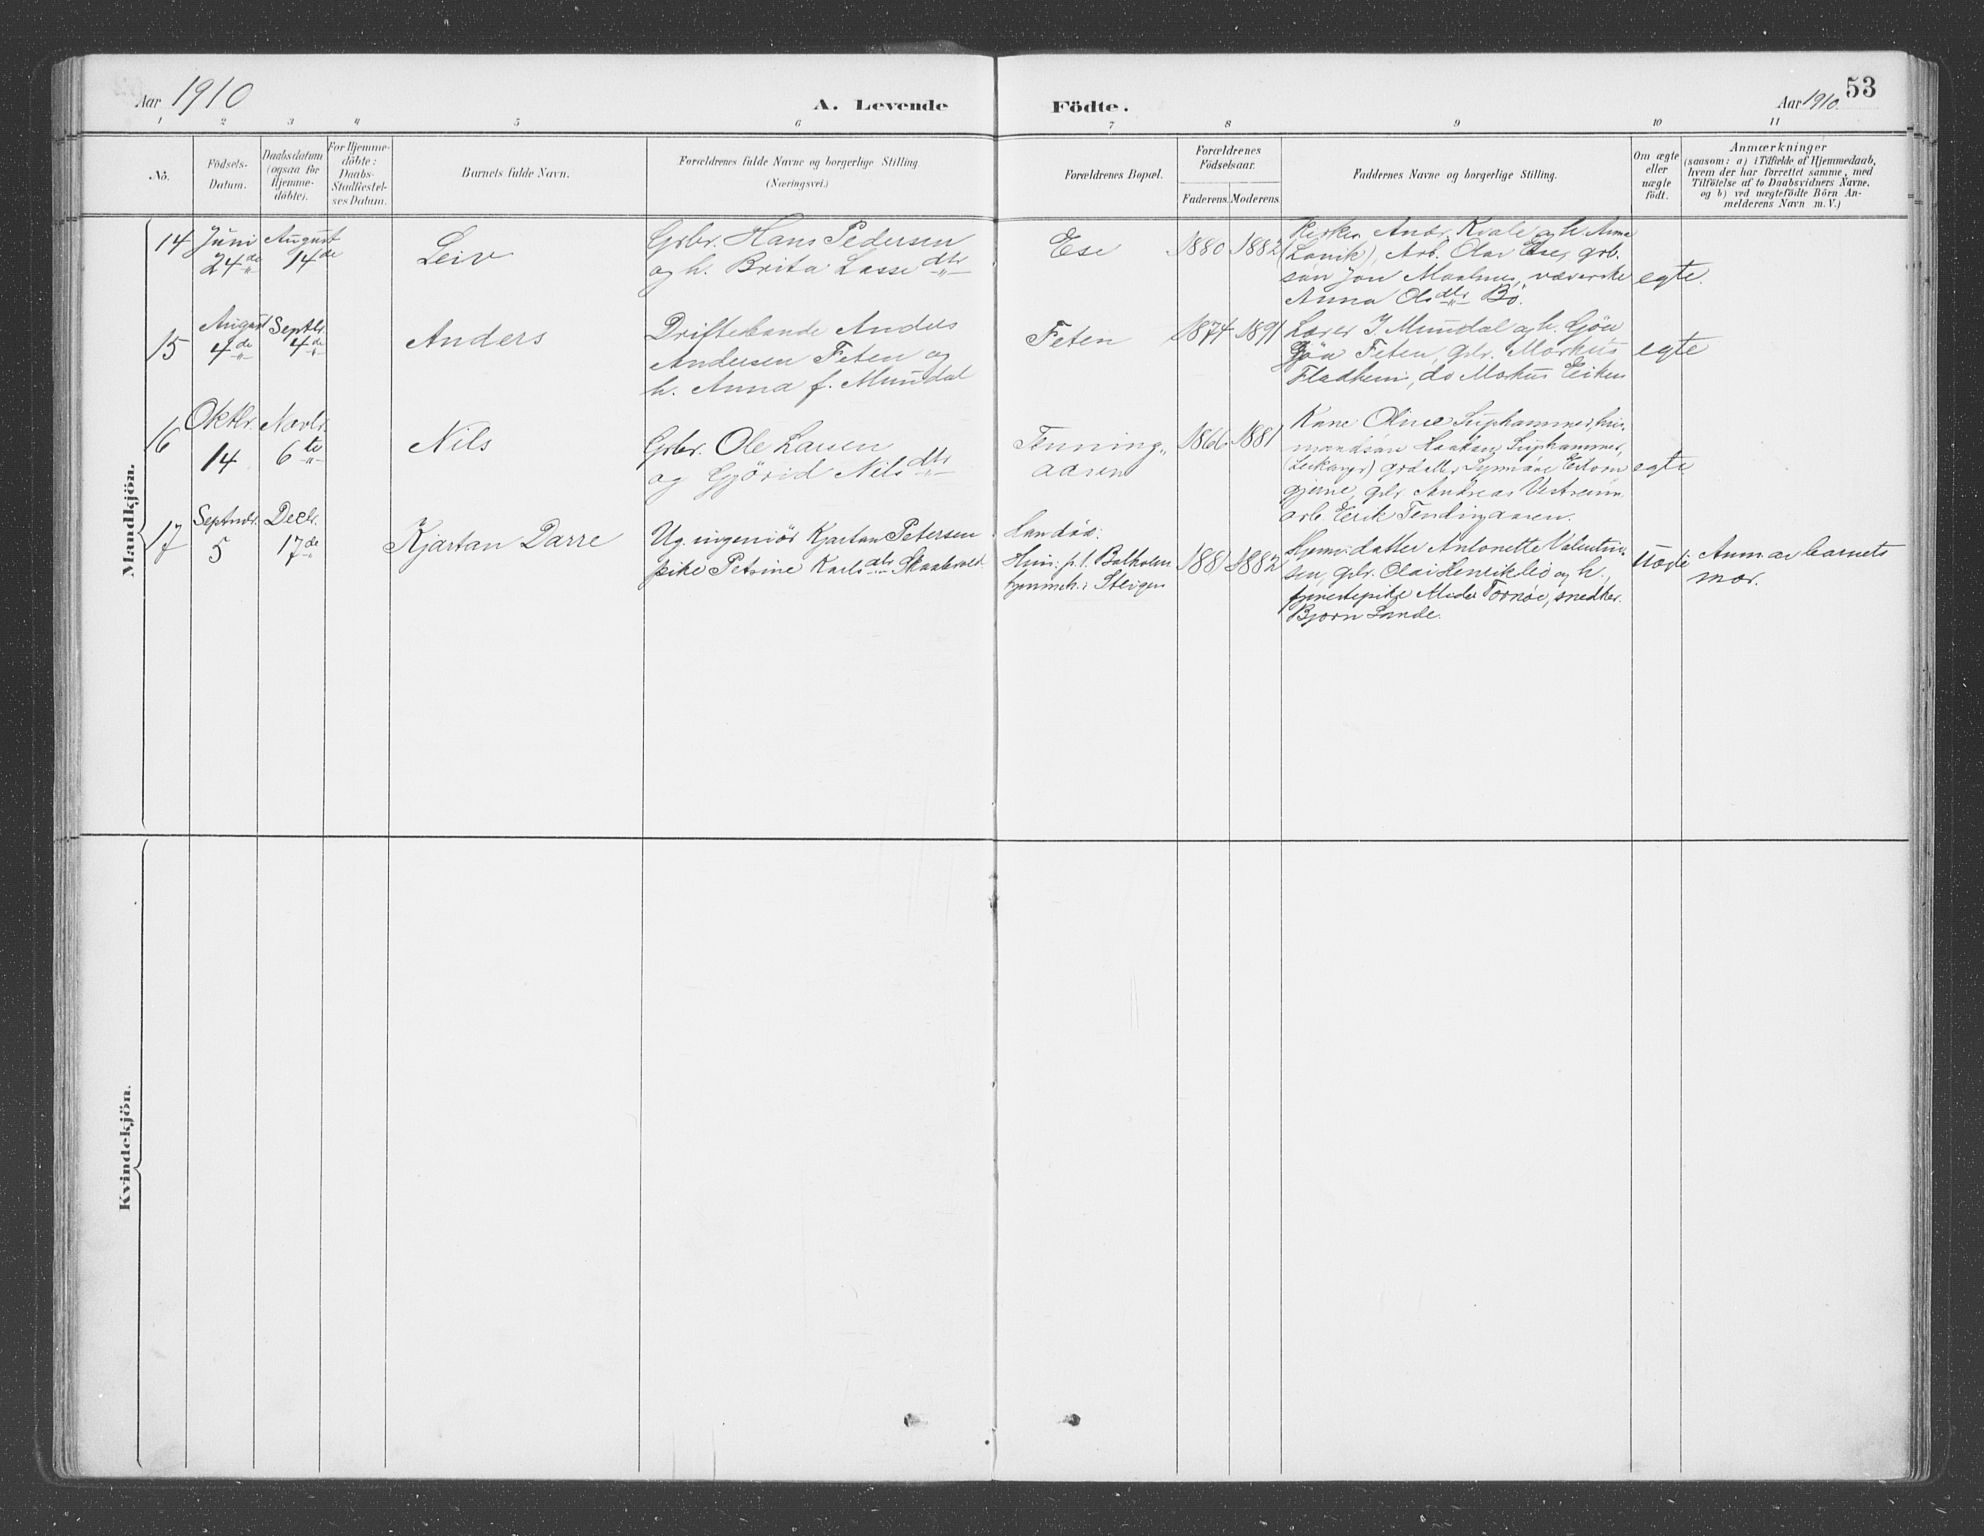 Aar 1910
A. Levende Födte.
Aar 1910.
53
1 2 3 4 5 6 7 8 9 10 11
No.
Födsels-Datum.
Daabsdatum (ogsaa for Hjemmedöbte).
For Hjemmedöbte: Daabs-Stadfæstelses Datum.
Barnets fulde Navn.
Forældrenes fulde Navne og borgerlige Stilling.
(Næringsvei.)
Forældrenes Bopæl.
Forældrenes Födselsaar.
Faderens. Moderens.
Faddernes Navne og borgerlige Stilling.
Om ægte eller uægte födt.
Anmærkninger
(saasom: a) i Tilfælde af Hjemmedaab,
hvem der har forrettet samme, med
Tilföielse af to Daabsvidners Navne,
og b) ved uægtefödte Börn Anmelderens Navn m. V.)
Mandkjön.
14 Juni 24de August 14de
Leiv
Grbr. Hans Pedersen
og h. Brita Lassedtr
Ese
1880 1882
Andr. Kvale og h. Anna
Arb. Olai Ese, grb.
søn Jon Maalsnes, væverske
Anna Olsdtr Bø.
egte.
15 August 4de Septbr. 4de
Anders
Anders
Andersen Feten og
h. Anna f. Mundal
Feten
1874 1891
Lærer J. Mundal og h.
Feten, gbr. Markus
Fladheim, do Markus
egte
16 Oktbr. 14 Novbr. 6te
Nils
Grbr. Ole Larsen
og Gjörid Nilsdtr
Tenning-
aasen
1866 1881
Kone Oline
gbr Andreas
arb. Eirik Tendingaasen.
egte
17 Septmbr. 5 Decbr. 17de
Kjartan Darre
Ug. ingeniör Kjartan Petersen
pike Petrine Karlsdtr Skaalsvold
Handøs:
Hun: p.t. Balholm
hjemmeh: Steigen
188 1882
datter Antonette Valentin-
sen, gbr. Olai Henriklid og h.,
Tornøe, snedker
Bjørn Lande.
Uægte
Anm av barnets
mor.
Kvindekjön.